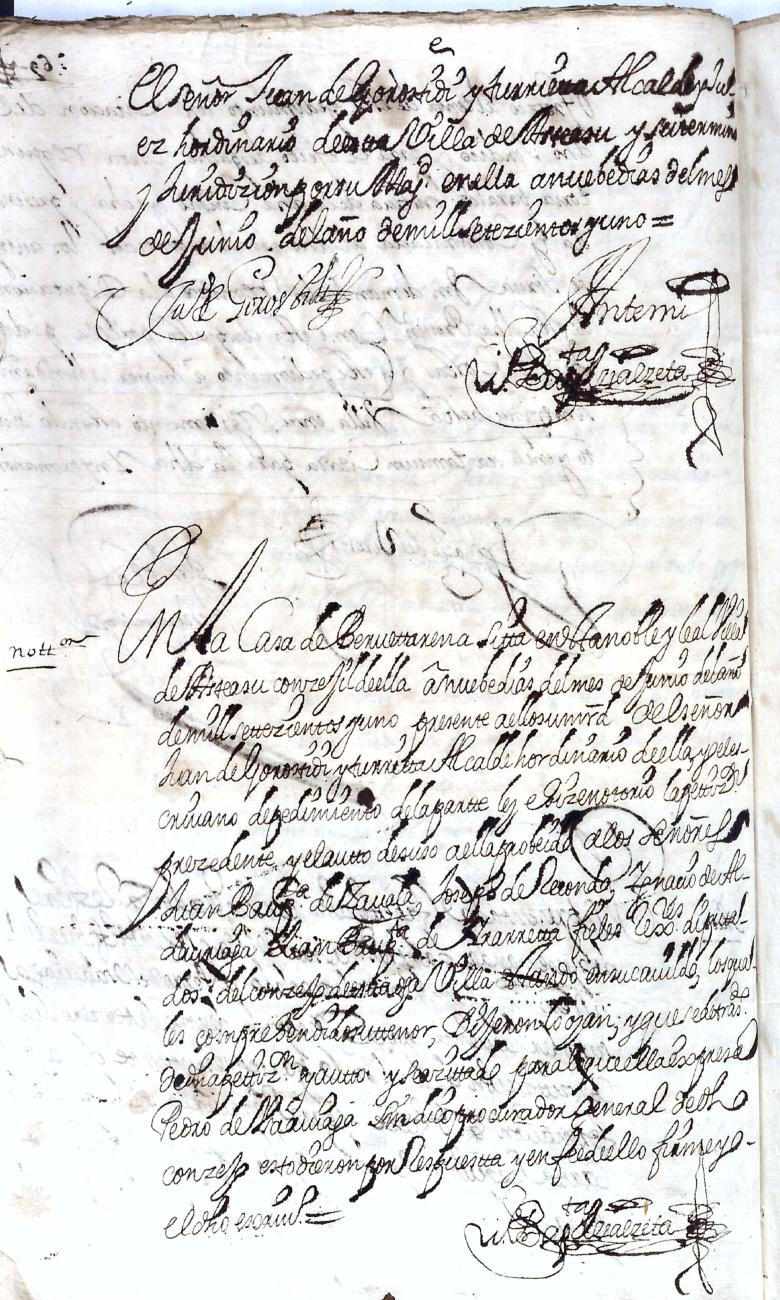 El señor Juan de Gorostidi yturrieta Alcalde y Ju-
ez hordinario de esta Villa de Asteasu y su termino
y Juridizion por su Magd en ella a nuebe dias del mes
de Junio del año de mill setezientos y uno =
Jun de Gorostidi
Ante mi
Ju. Bapta de Alzeta
notton
En la Casa de Beruettarena sitta en esta noble y leal Villa
de Asteasu conzejil de ella a nuebe dias del mes de Junio del año
de mill settezientos y uno presente a ello su mrd del señor
Juan de Gorostidi yturrietta Alcalde hordinario de ella yo el es-
criuano de pedimiento de la partte ley e hize notorio la pettizon
prezedente y el autto de suso a ella probeido a los señores
Juan Bapta de Zauala, Joseph de Recondo, Ygnacio de Al-
duriaga Juan Bapta de Yrarretta fieles Rexes diputa-
dos del conzejo de esta dha Villa estando en su cauildo, los qua-
les comprehendido su ttenor, Dijeron lo oyan, y que se de tras.do
de dha pettizn y autto
Pedro de Mariaga Sindico procurador General de dho
conzejo esto dieron por Respuestta y en fee de ello firme yo
el dho escriuo =
Ju. Bapta de Alzeta